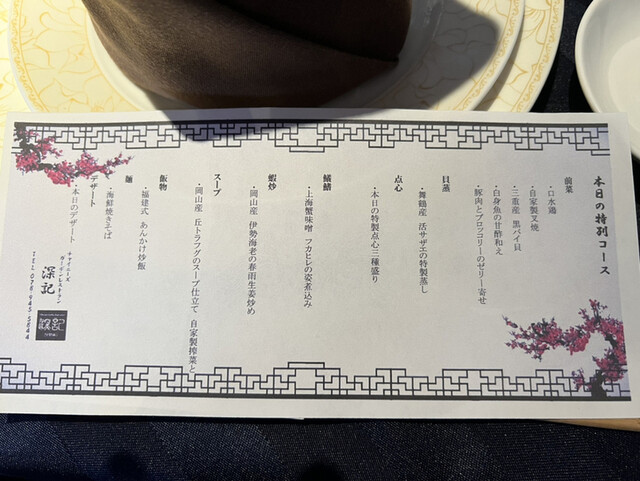 本日の特別コース
前菜
・口水鶏
・自家製叉焼
・三重産 黒バイ貝
・白身魚の甘酢和え
・豚肉とブロッコリーのゼリー寄せ
貝蒸
・舞鶴産 活サザエの特製蒸し
点心
・本日の特製点心三種盛り
・上海蟹味噌 フカヒレの姿煮込み
蝦炒
・岡山産 伊勢海老の春雨生姜炒め
スープ
・岡山産 丘トラフグのスープ仕立て 自家製搾菜と
飯物
・福建式 あんかけ炒飯
麺
・海鮮焼きそば
デザート
・本日のデザート
チャイニーズ
ガーデンレストラン
深記
TEL 078-945-5644